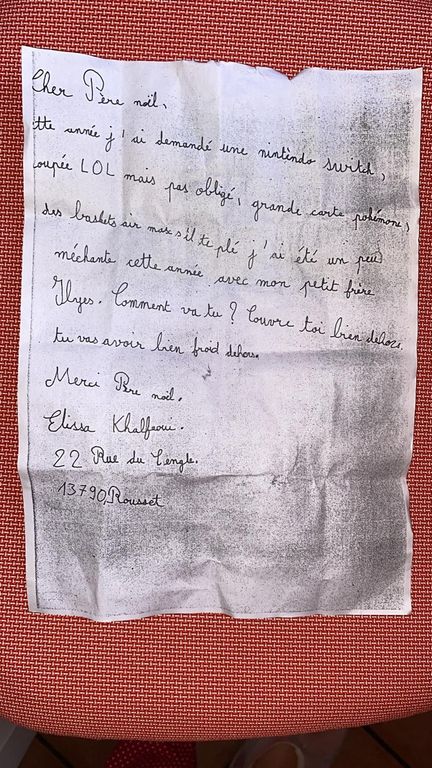 Cher Père noël,
tte année j'ai demandé une nintendo switch,
oupée LOL mais pas obligé, grande carte pokémone,
des baskets air max s'il te plé j'ai été un peu
méchante cette année avec mon petit frère
Ilyes. Comment va tu ? Couvre toi bien dehors.
tu vas avoir bien froid dehors.
Merci Père noël.
Elissa Khalfaoui.
22 Rue du Cengle.
13790, Rousset